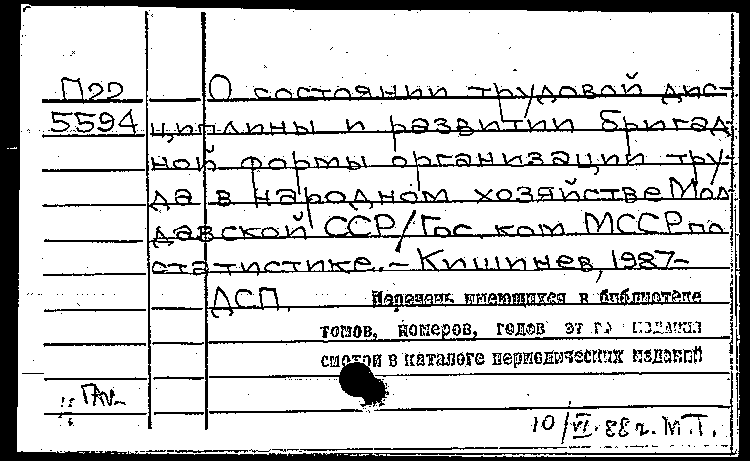 П22 О состоянии трудовой дис-
5594 циплины и развитии бригад
ной формы организации тру-
да в народном хозяйстве Мол
давской ССР/Гос. ком. МССР по
статистике. – Кишинев, 1987–
ДСП. Перечень имеющихся в библиотеке
томов, номеров, годов эт го издания
смотри в каталоге периодических изданий
10/VI.88г. М.Т.